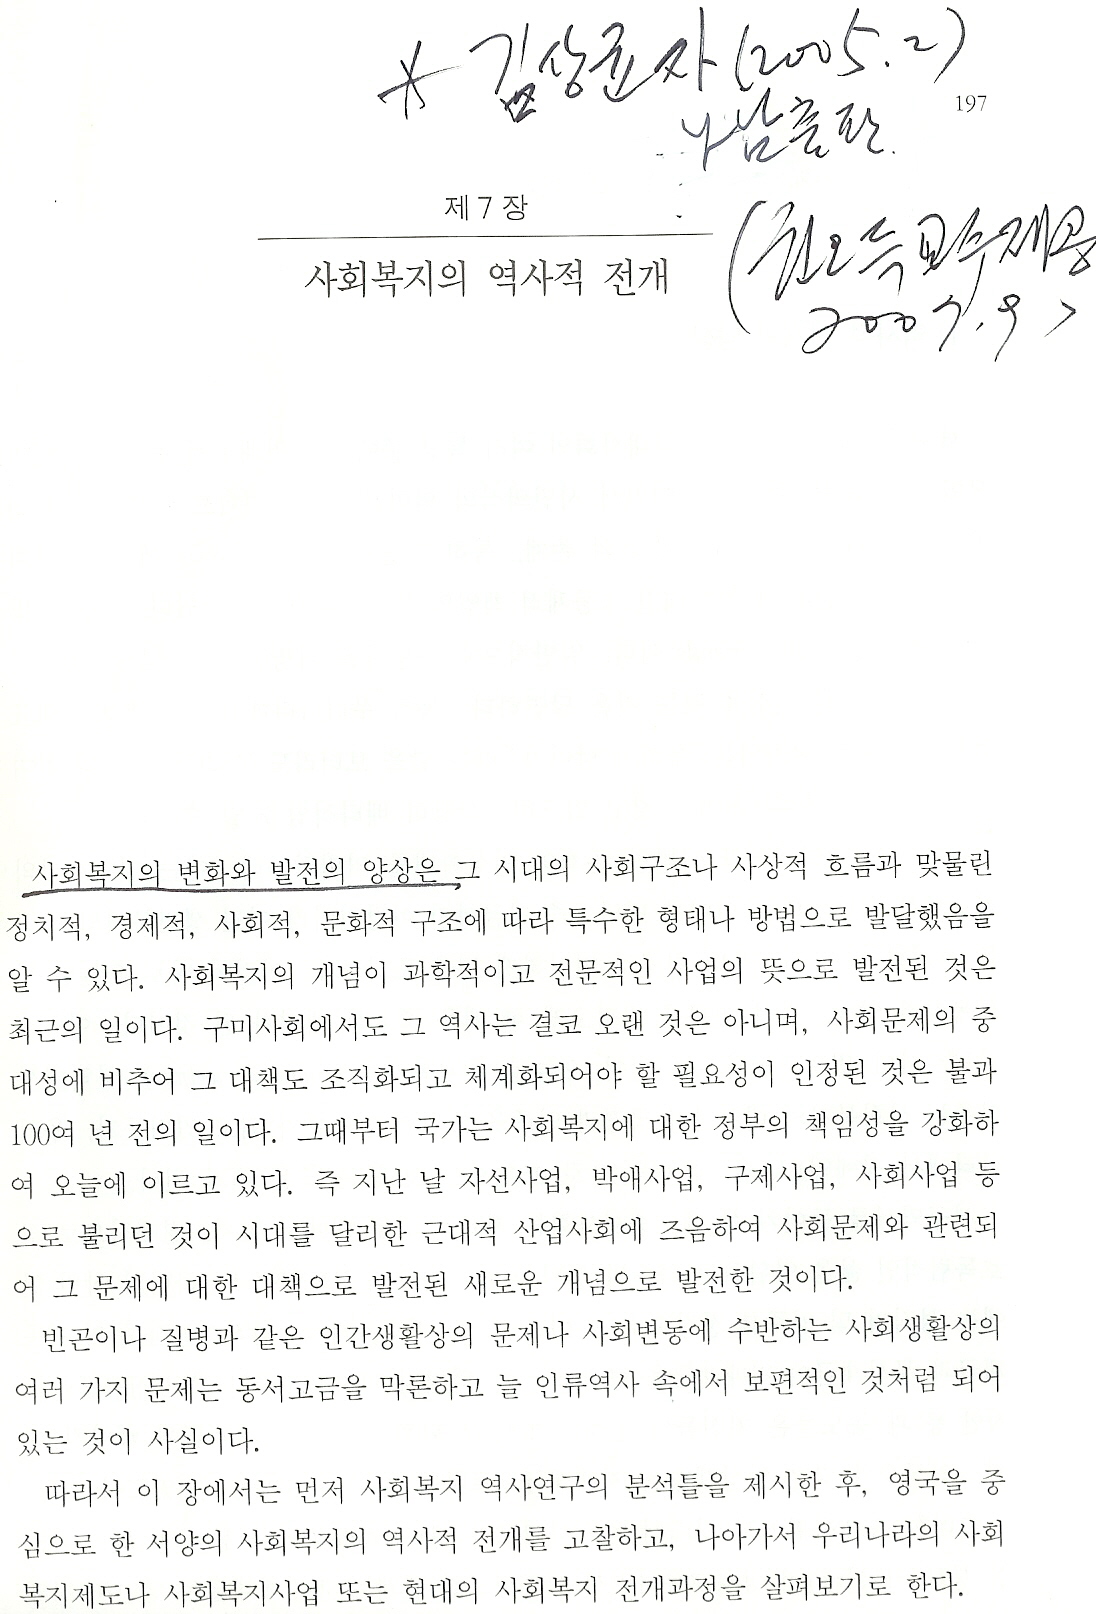 * 김상균 저 (2005.2)
나남출판.
197
제 7 장
(권오득 교수 제공
2007. 9 >
사회복지의 역사적 전개
사회복지의 변화와 발전의 양상은 그 시대의 사회구조나 사상적 흐름과 맞물린
정치적, 경제적, 사회적, 문화적 구조에 따라 특수한 형태나 방법으로 발달했음을
알 수 있다. 사회복지의 개념이 과학적이고 전문적인 사업의 뜻으로 발전된 것은
최근의 일이다. 구미사회에서도 그 역사는 결코 오랜 것은 아니며, 사회문제의 중
대성에 비추어 그 대책도 조직화되고 체계화되어야 할 필요성이 인정된 것은 불과
100여 년 전의 일이다. 그때부터 국가는 사회복지에 대한 정부의 책임성을 강화하
여 오늘에 이르고 있다. 즉 지난 날 자선사업, 박애사업, 구제사업, 사회사업 등
으로 불리던 것이 시대를 달리한 근대적 산업사회에 즈음하여 사회문제와 관련되
어 그 문제에 대한 대책으로 발전된 새로운 개념으로 발전한 것이다.
빈곤이나 질병과 같은 인간생활상의 문제나 사회변동에 수반하는 사회생활상의
여러 가지 문제는 동서고금을 막론하고 늘 인류역사 속에서 보편적인 것처럼 되어
있는 것이 사실이다.
따라서 이 장에서는 먼저 사회복지 역사연구의 분석틀을 제시한 후, 영국을 중
심으로 한 서양의 사회복지의 역사적 전개를 고찰하고, 나아가서 우리나라의 사회
복지제도나 사회복지사업 또는 현대의 사회복지 전개과정을 살펴보기로 한다.